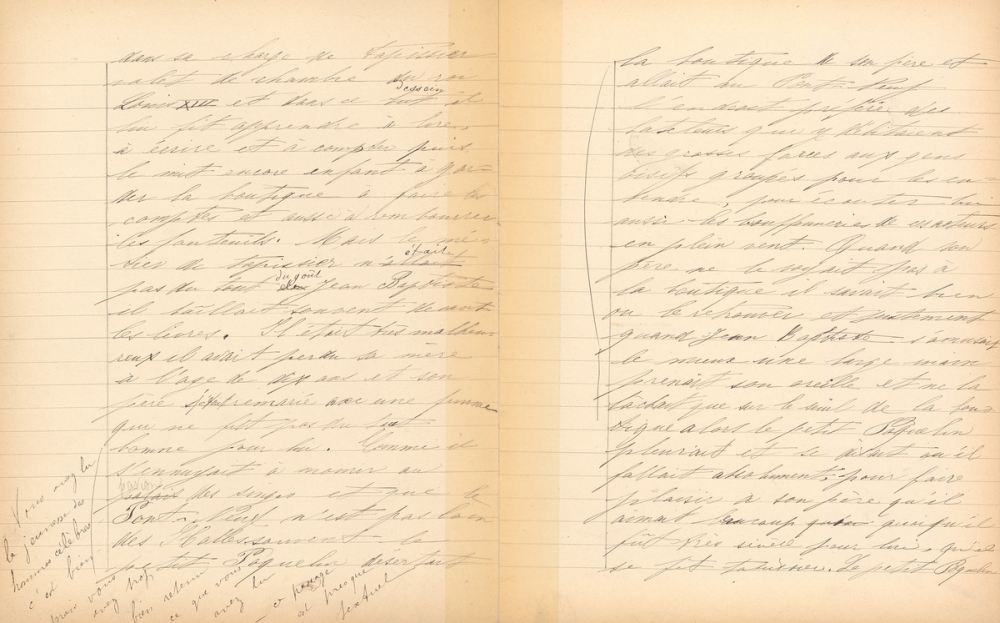 dans sa charge de tapissier
valet de chambre du roi
Louis XIII et dans ce but il
dessein
lui fit apprendre à lire,
à écrire et à compter puis
le mit encore enfant à gar-
der la boutique à faire les
comptes et aussi à rembourrer
les fauteuils. Mais le mé-
tier de tapissier n'était
pas du tout du goût Jean Baptiste
il bâillait souvent devant
les livres. Il était très malheu
reux il avait perdu sa mère
à l'age de dix ans et son
père s'était remarié avec une femme
qui ne fût pas du tout
bonne pour lui. Comme il
s'ennuyait à mourir au
des singes et que le
Pont-Neuf n'est pas loin
des Halles souvent le
petit Poquelin désertait
Vous avez lu
la jeunesse des
hommes célèbres
c'est bien
mais vous
avez trop
bien retenu
ce que vous
avez lu
ce passage
est presque
textuel
la boutique de son père et
allait au Pont-Neuf
l'endroit préféré des
bateleurs qui y débitaient
des grosses farces aux gens
oisifs groupés pour les en-
tendre, pour écouter lui
aussi les bouffonneries de ces acteurs
en plein vent. Quand son
père ne le voyait pas à
la boutique il savait bien
ou le retrouver et justement
quand Jean Baptiste s'amusait
le mieux une large main
prenait son oreille et ne la
lâchait que sur le seuil de la bou-
tique alors le petit Poquelin
pleurait et se disait qu'il
fallait absolument, pour faire
plaisir à son père qu'il
aimait beaucoup quoiqu'il
fût très sévère pour lui, qu'il
se fit tapissier. Le petit Poquelin